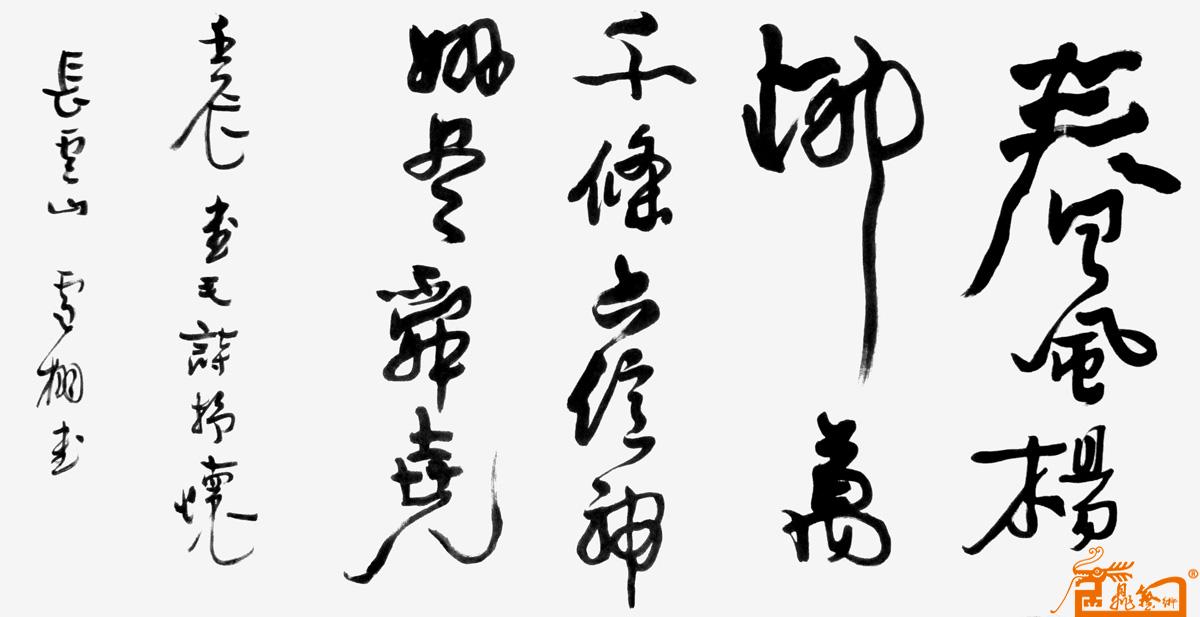 春風楊
柳萬
千條六億神
州尽舜堯
壬辰 書毛詩抒懷
長雲山 雪 書